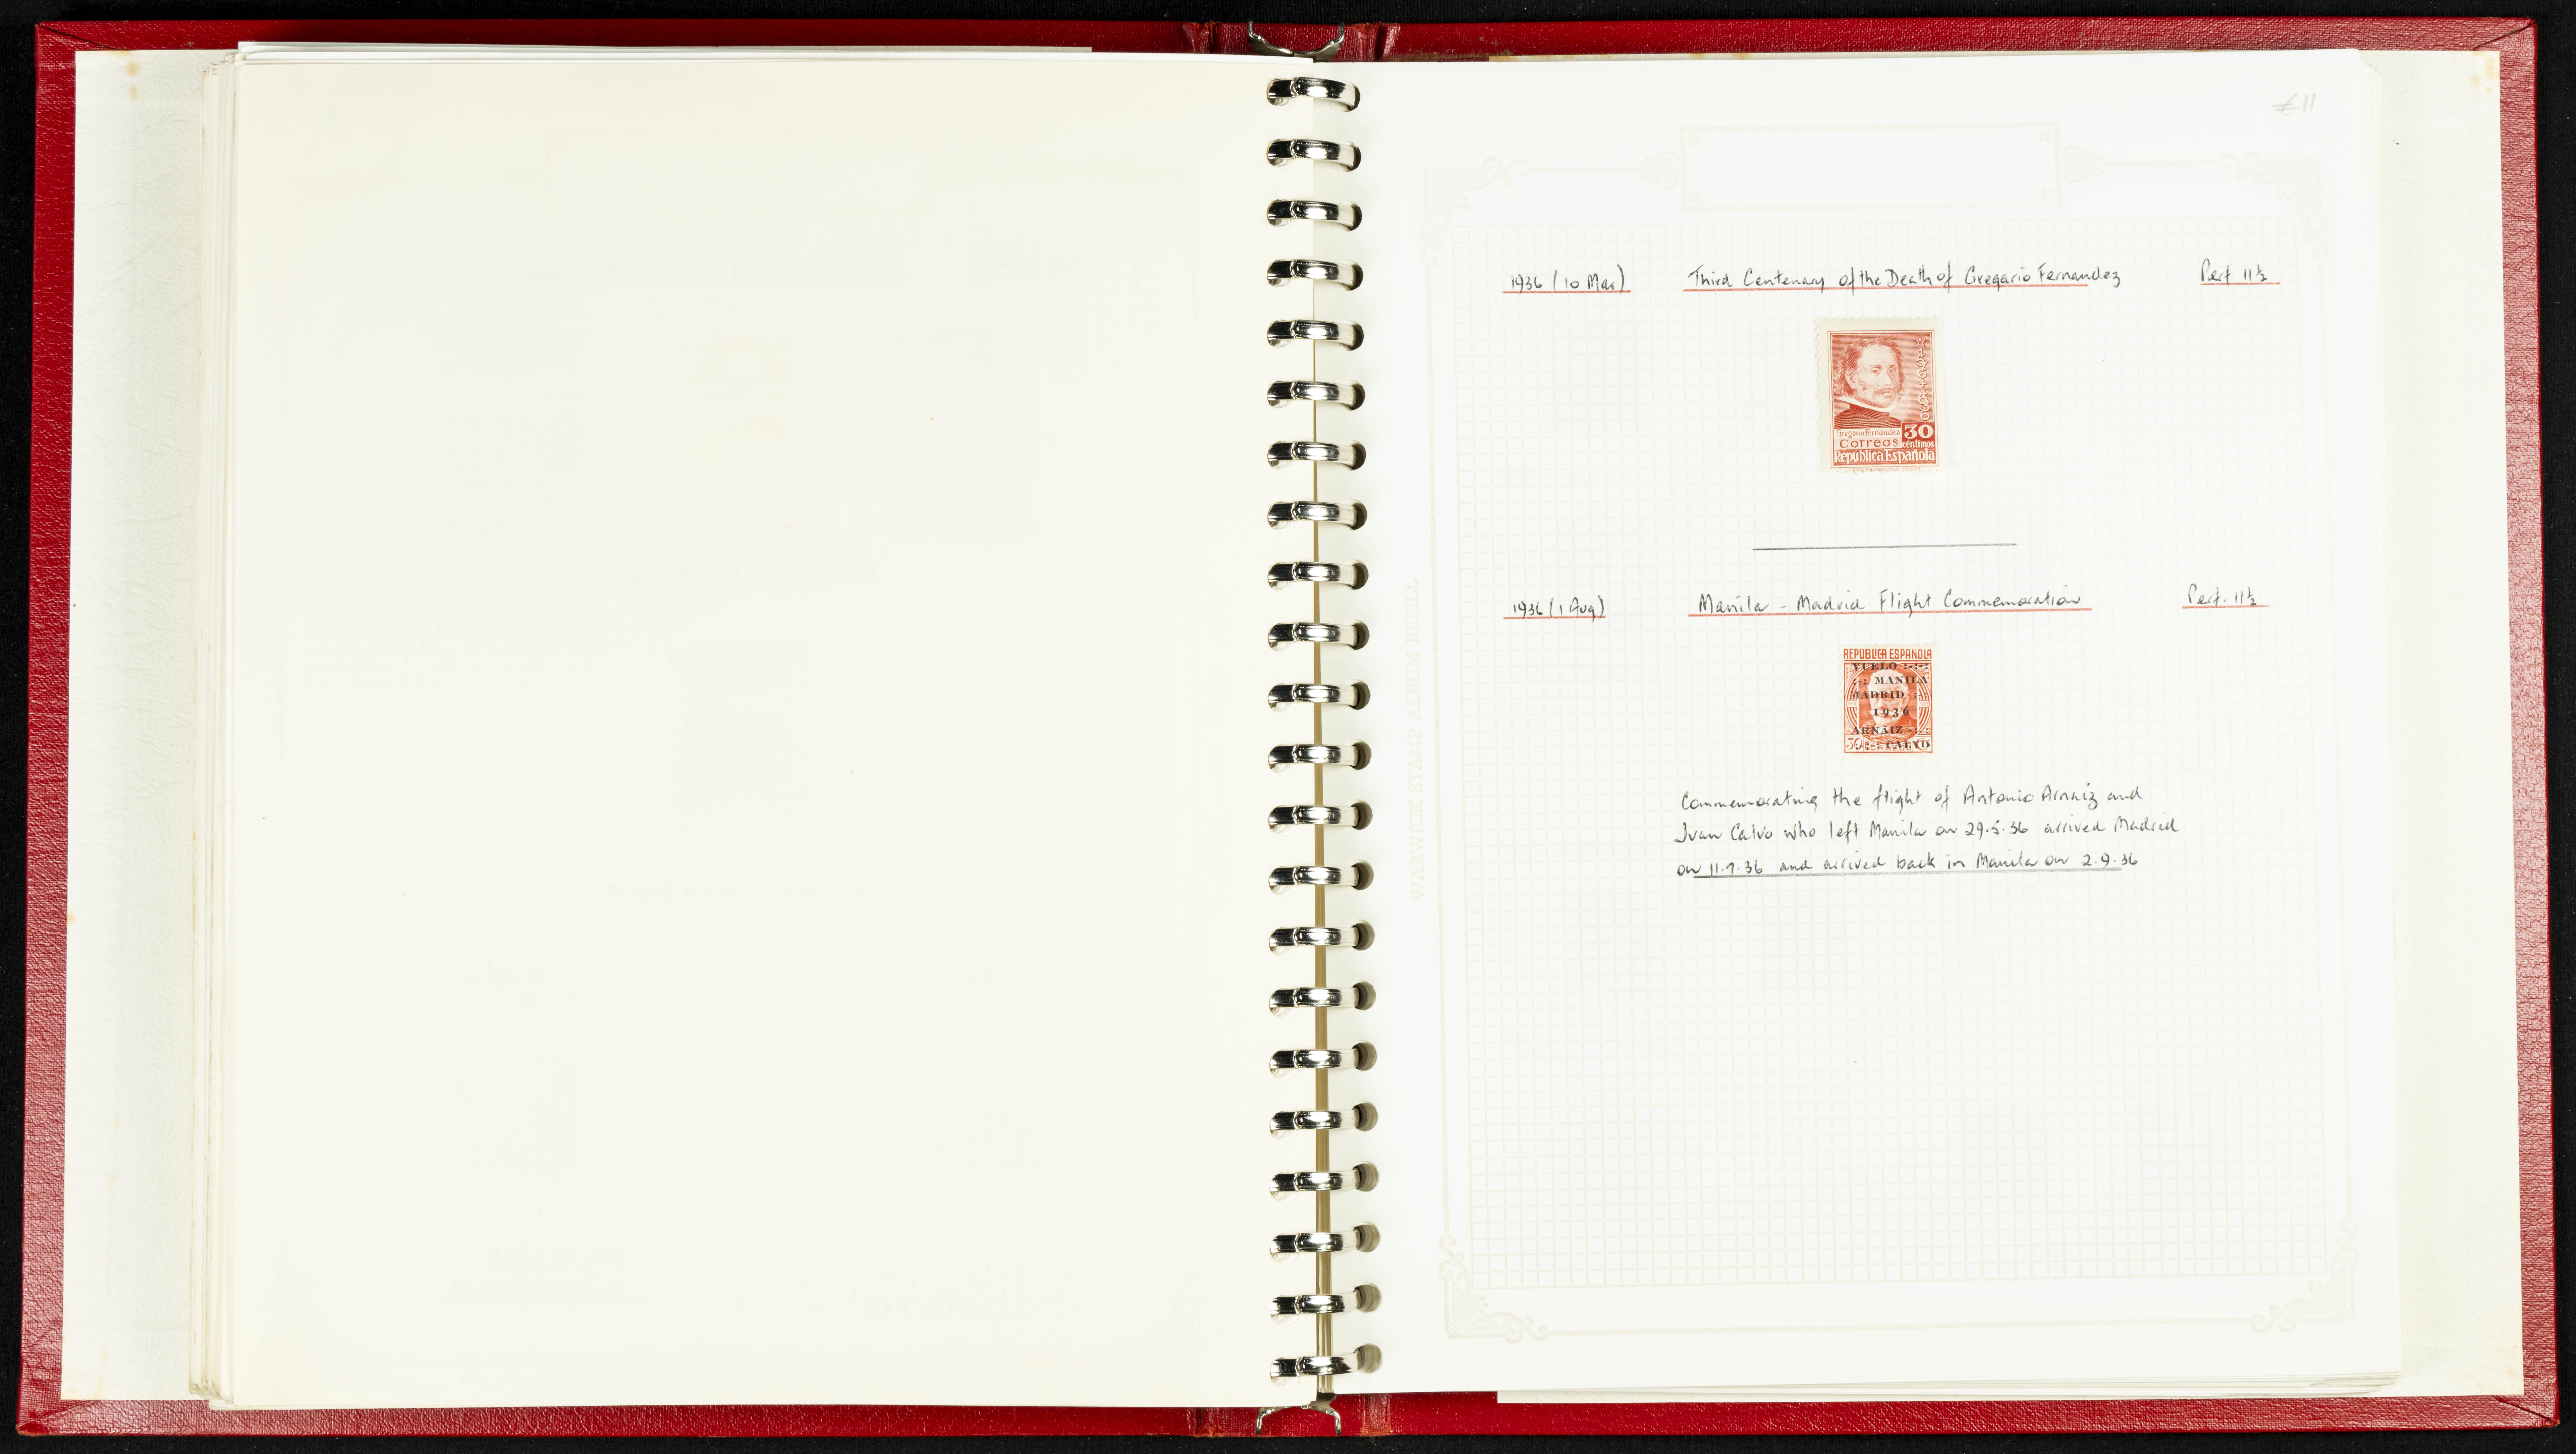 £11
1936 (10 Mar) Third Centenary of the Death of Gregario Fernandez Perf 11½
1576 + 1636
Gregorio Fernández 30
Correos céntimos
República Española
1936 (1 Aug) Manila - Madrid Flight Commemoration Perf. 11½
REPUBLICA ESPAÑOLA
VUELO
MANILA
MADRID
1936
ARNAIZ
30 CALVO
Commemorating the flight of Antonio Arnaiz and
Juan Calvo who left Manila on 29.5.36 arrived Madrid
on 11.7.36 and arrived back in Manila on 2.9.36
WARWICK STAMP ALBUM REFILL